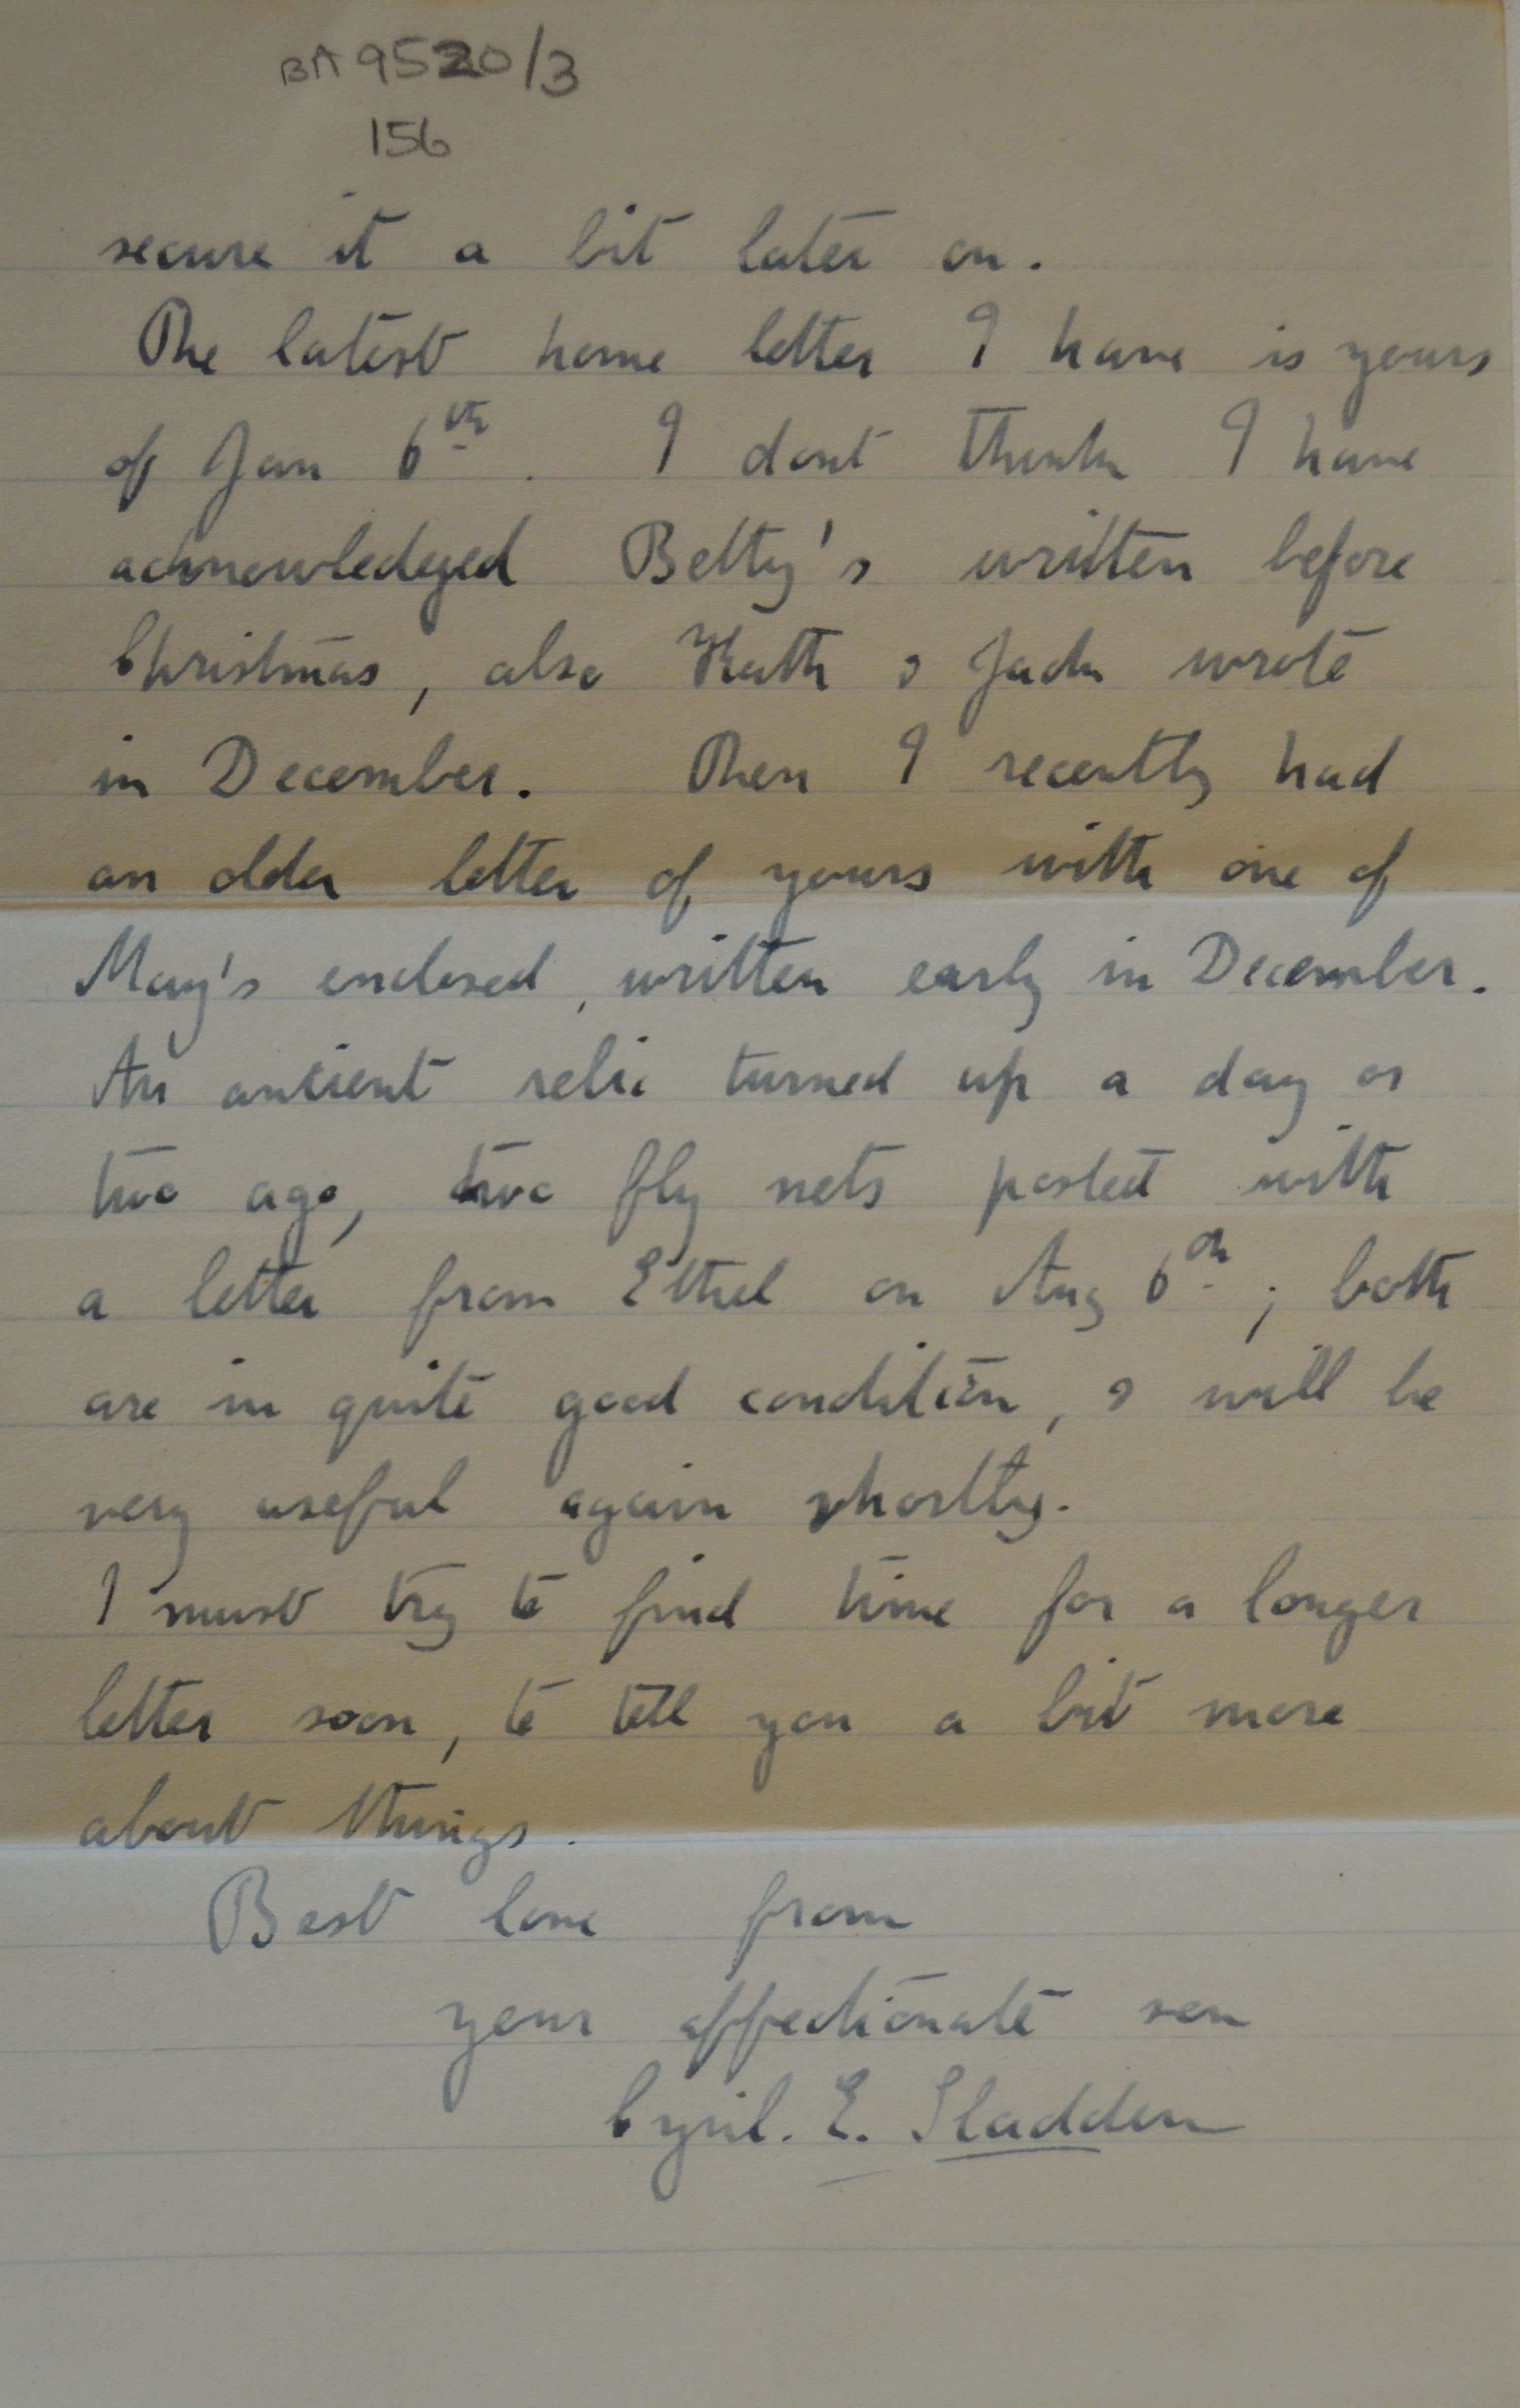 BA 9520/3
156
secure it a bit later on.
The latest home letter I have is yours
of Jan 6th. I dont think I have
acknowledged Betty's written before
Christmas, also Kath & Jack wrote
in December. Then I recently had
an older letter of yours with one of
May's enclosed, written early in December.
An ancient relic turned up a day or
two ago, two fly nets posted with
a letter from Ethel on Aug 6th; both
are in quite good condition, & will be
very useful again shortly.
I must try to find time for a longer
letter soon, to tell you a bit more
about things.
Best love from
your affectionate son
Cyril. E. Sladden